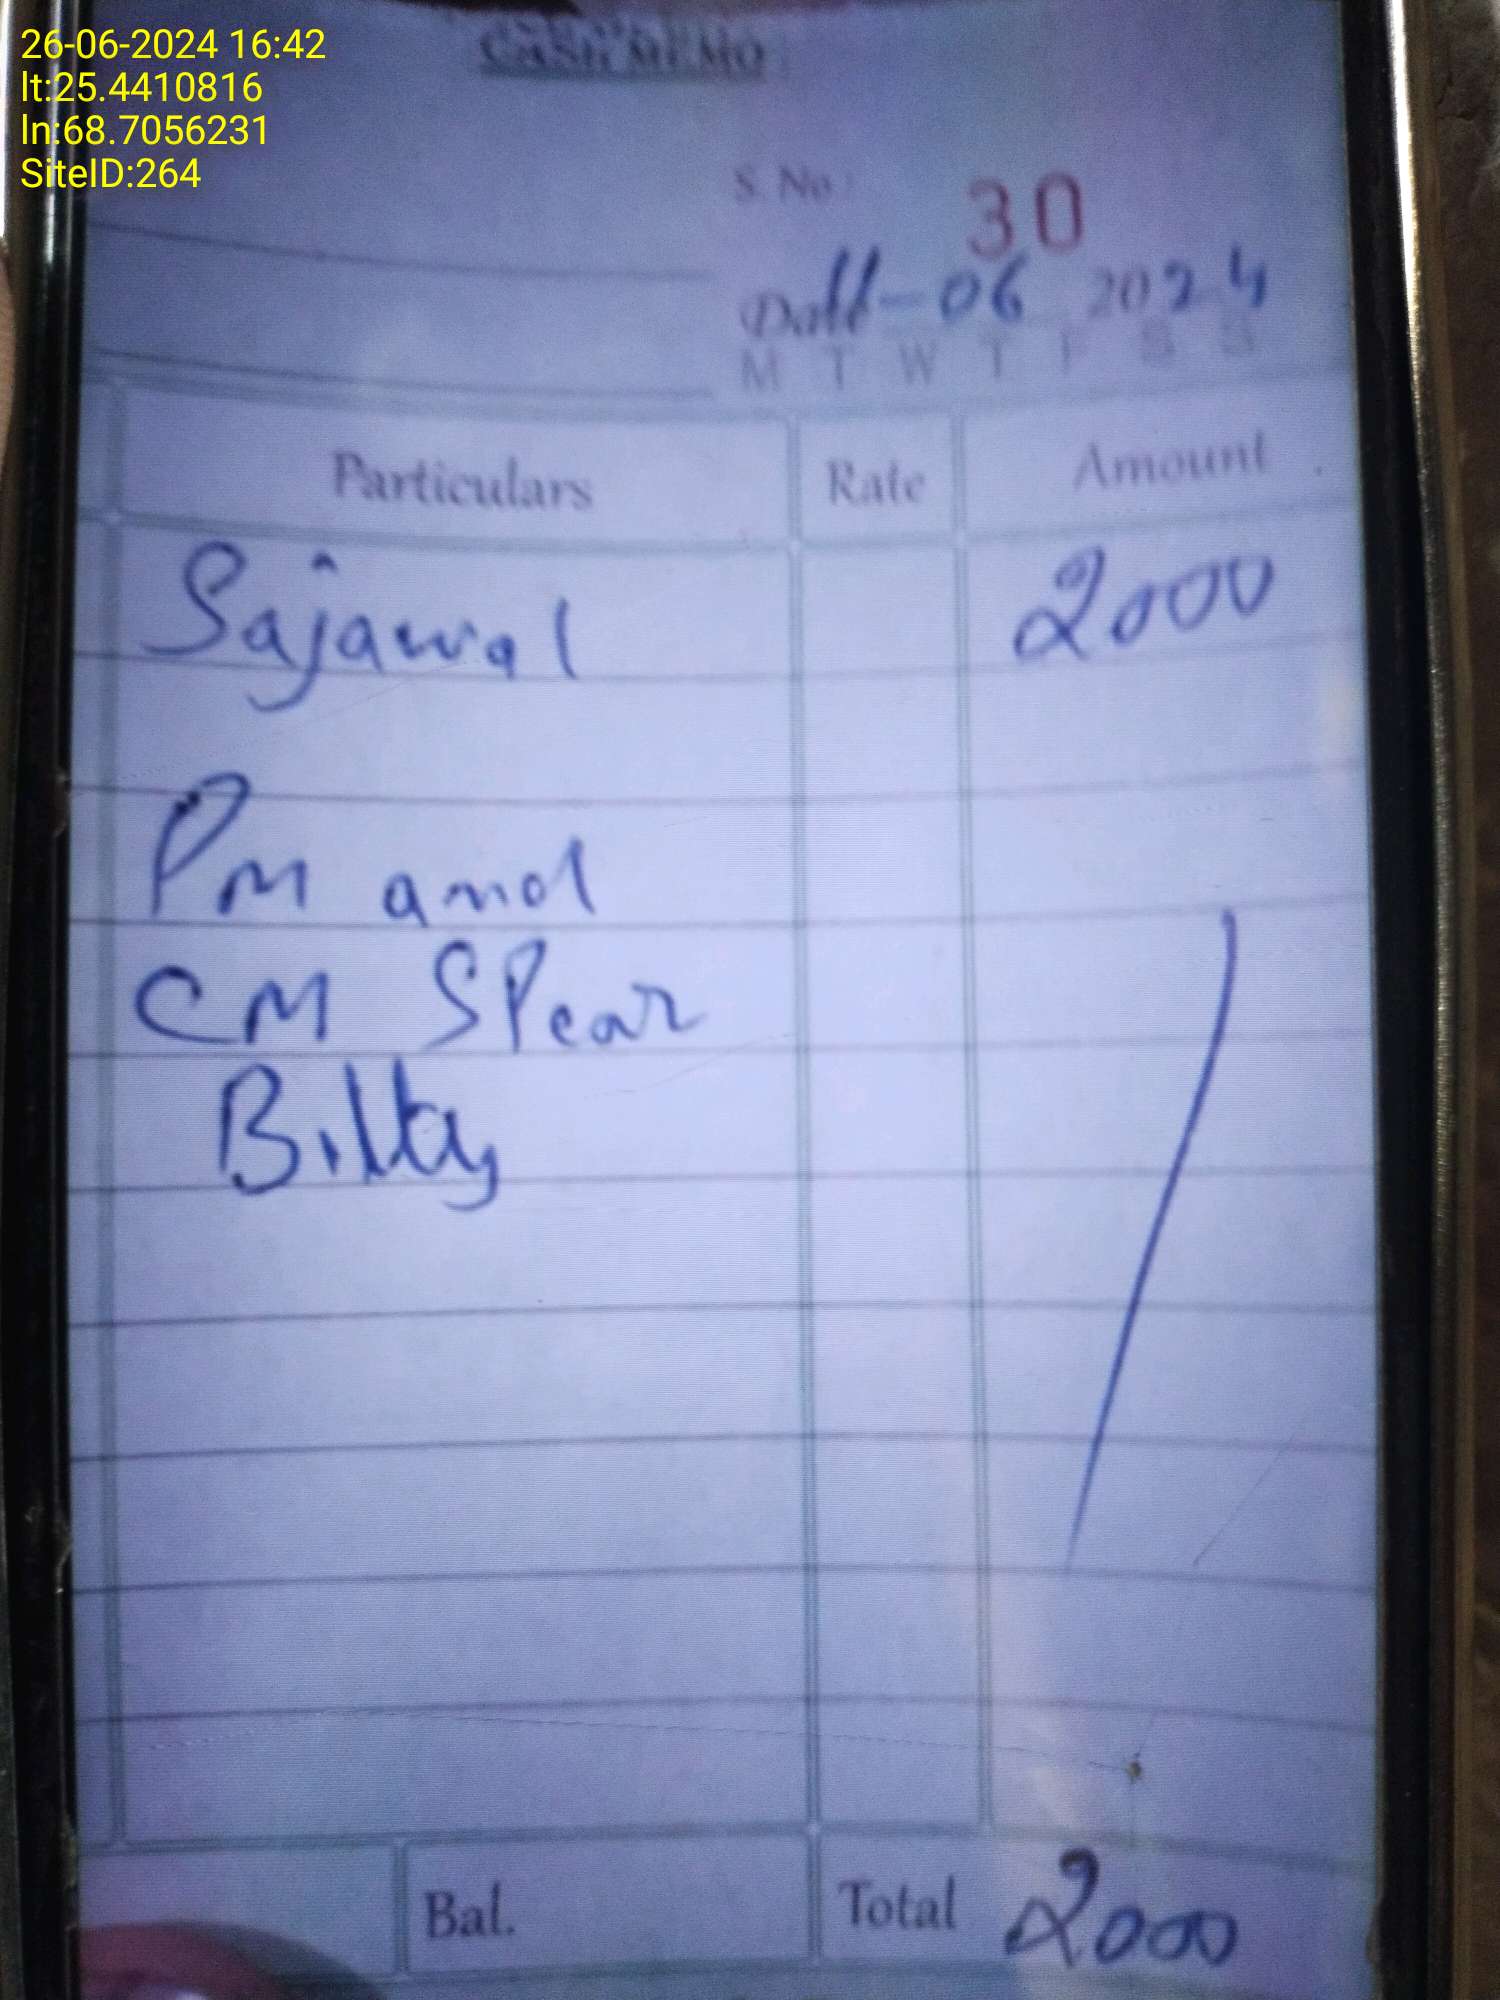 26-06-2024 16:42
lt:25.4410816
ln:68.7056231
SiteID:264
CASH MEMO
S. No. 30
Date 11-06 2024
M T W T F S S
Particulars Rate Amount
Sajawal 2000
PM and
CM SPear
Bilty
Bal. Total 2000